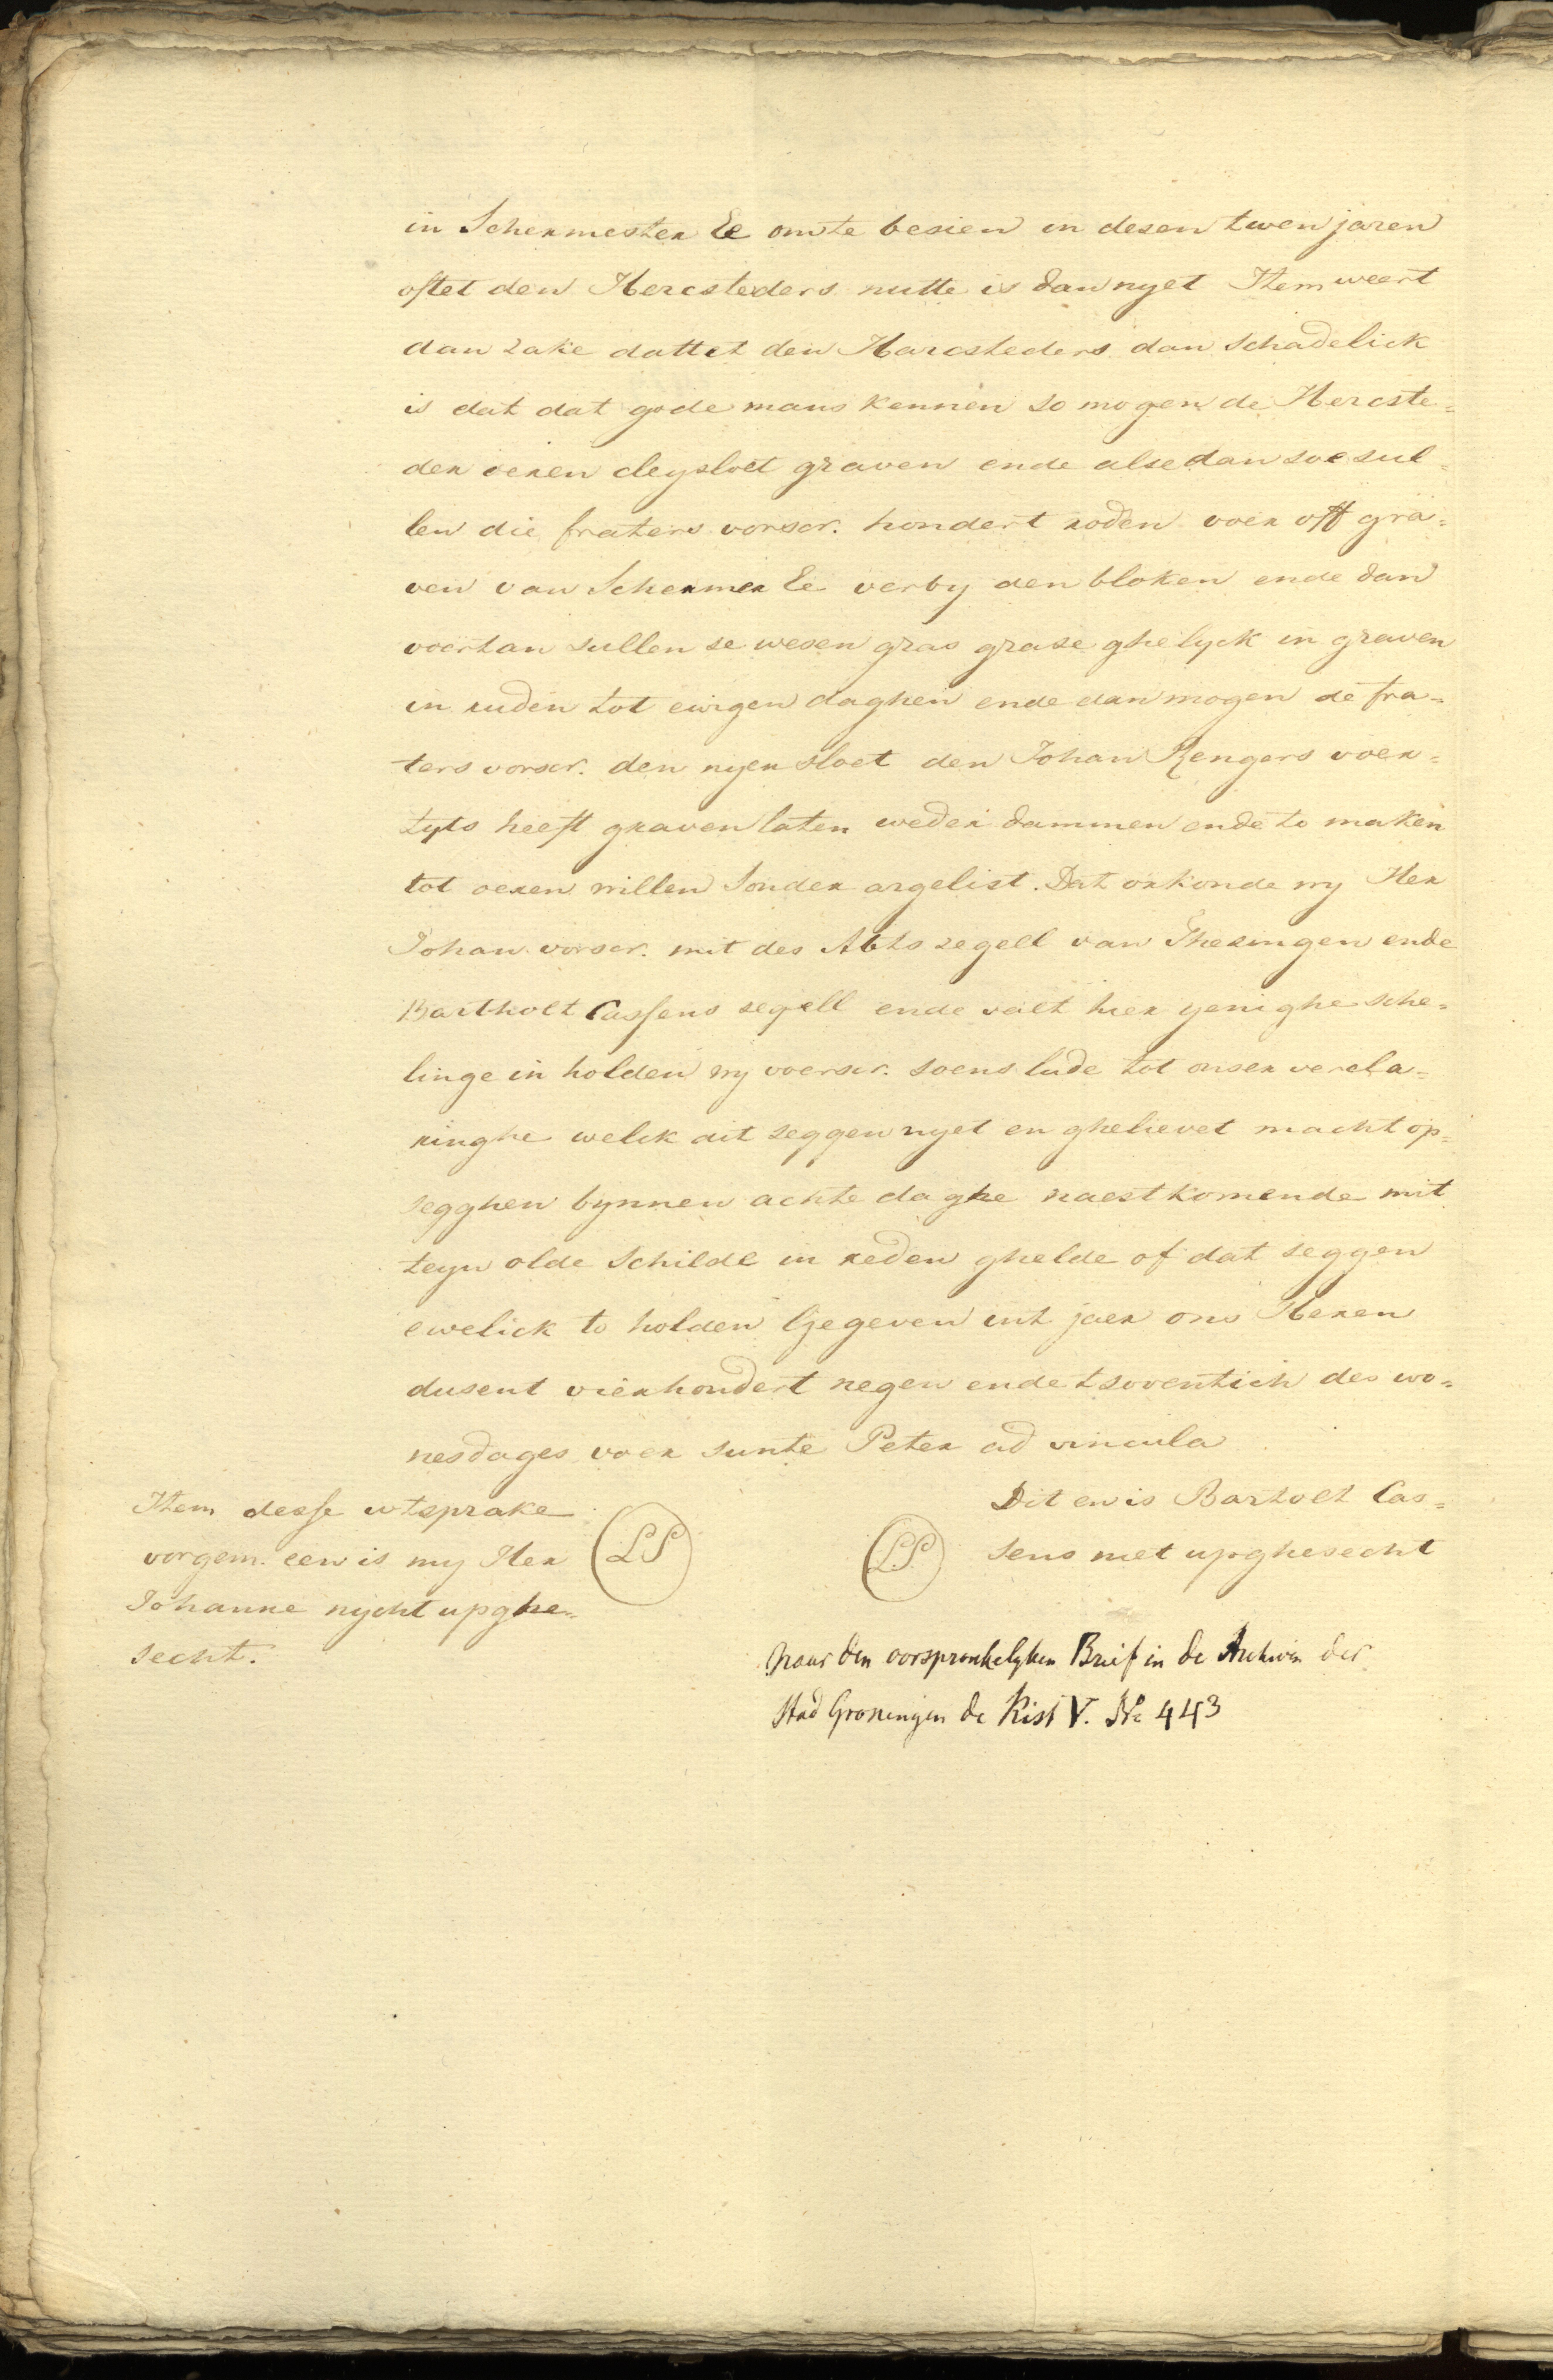 in Schermester Ee omte besien in desen twen jaren
oftet den Hercsteders nutte is dan nyet Item weert
dan zake dattet den Harcsteders dan schadelick
is dat dat gode mans kennen so mogen de Hercste=
der oeren cleysloet graven ende alsedan soe sul=
len die fraters vorscr. hondert roden voer off gra=
ven van Schermer Ee verby den bloken ende dan
voertan sullen se wesen gras grase ghelyck in graven
in ruden tot ewigen daghen ende dan mogen de fra=
ters vorscr. den nyen sloet den Johan Rengers voer=
tyts heeft graven laten weder dammen ende to maken
tot oeren willen sonder argelist. Dat orkonde wy Her
Johan vorscr. mit des Abts zegell van Thesingen ende
Bartholt Cassens segell ende velt hier yenighe sche=
linge in holden wy voerscr. soens lude tot onser vercla=
ringhe welck dit seggen nyet en ghelievet macht op=
segghen bynnen achte daghe naestkomende mit
teyn olde Schilde in reden ghelde of dat seggen
ewelick to holden Gegeven int jaer ons Heren
dusent vierhondert negen ende tsoventich des wo=
nesdages voer sunte Peter ad vincula
Item desse wtsprake
vorgem. een is my Her
Johanne nycht upghe=
secht.
LS
LS
Dit en is Bartolt Cas=
sens niet upghesecht
Naar den oorspronkelyken Brief in de Archiven der
Stad Groningen de Kist V. No 443